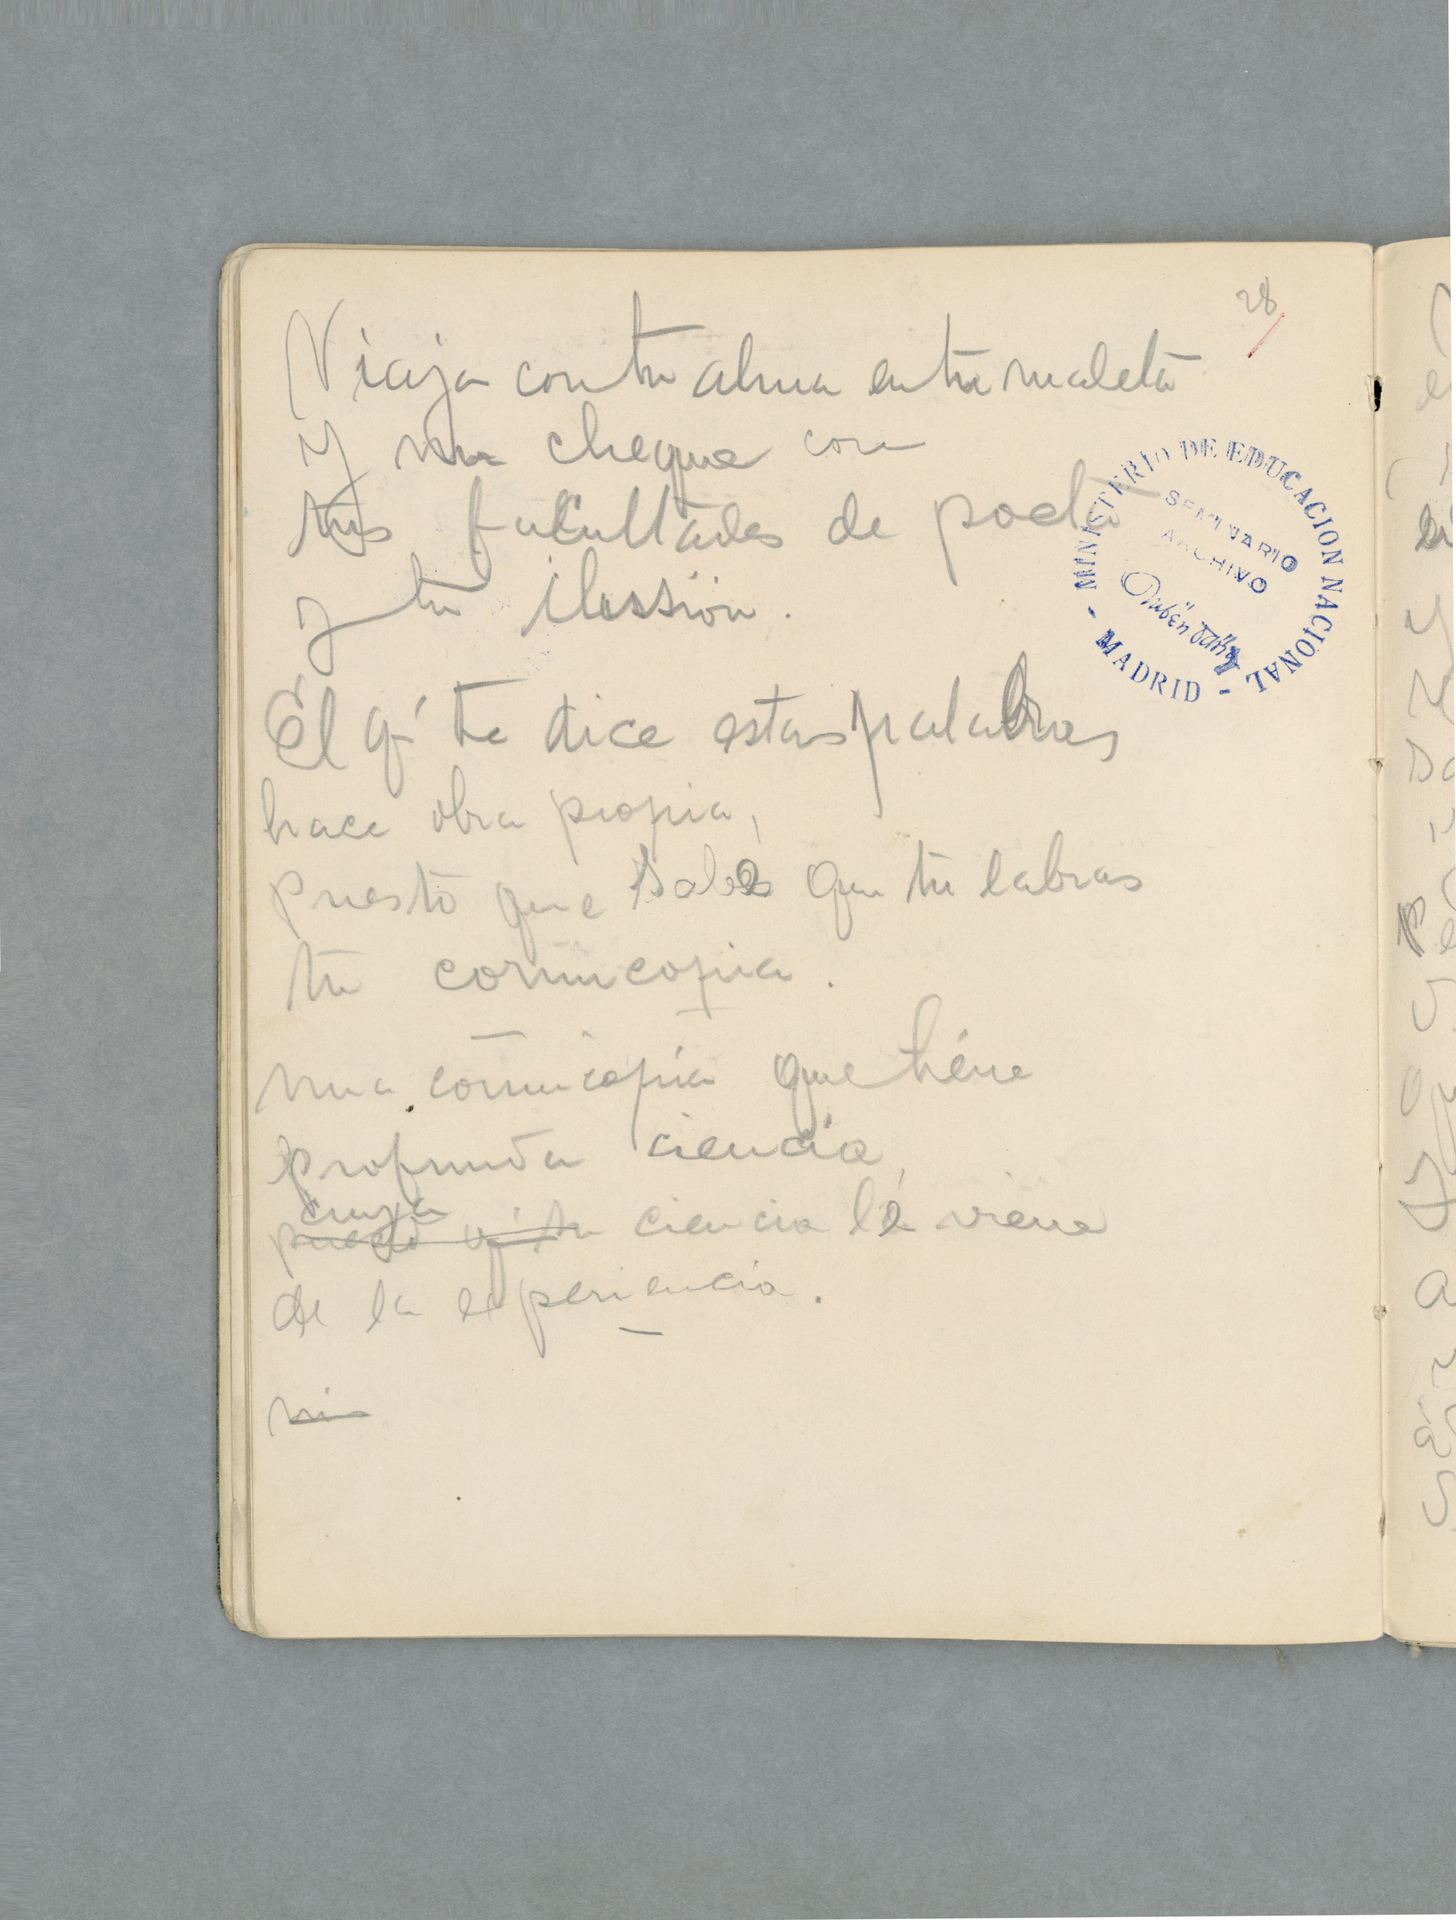 28
Viaja con tu alma en tu maleta
y un cheque con
tus facultades de poeta
y tu ilussión.
El q' te dice estas palabras
hace obra propia,
puesto que sabes que tu labras
tu cornucopia.
una cornucopia que tiene
profunda ciencia,
cuya
puesto q' tu ciencia le viene
de la experiencia.
MINISTERIO DE EDUCACION NACIONAL - MADRID -
SEMINARIO
ARCHIVO
Rubén Darío